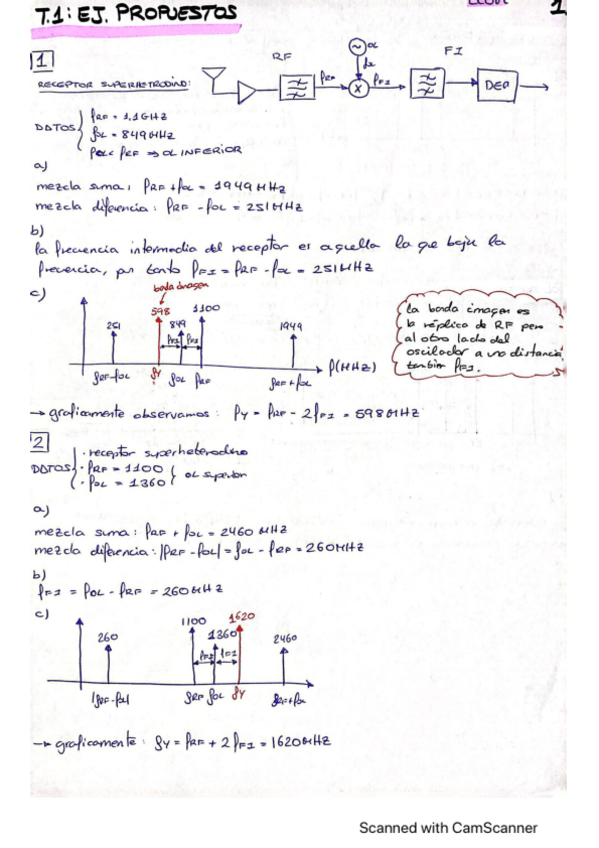 T.1: EJ. PROPUESTOS
1
1
RECEPTOR SUPERHETRODINO:
RF
OL
fOL
FI
fRF
fFI
DEM
DATOS
fRF = 1,1GHZ
fOL = 849MHZ
fOL < fRF => OL INFERIOR
a)
mezcla suma: fRF + fOL = 1949 MHZ
mezcla diferencia: fRF - fOL = 251MHZ
b)
la frecuencia intermedia del receptor es aquella la que baja la
frecuencia, por tanto fFI = fRF - fOL = 251MHZ
c)
banda imagen
251
598
849
1100
1949
fFI
fFI
f(MHZ)
fRF-fOL
fY
fOL
fRF
fRF+fOL
la banda imagen es
la réplica de RF pero
al otro lado del
oscilador a una distancia
también fFI.
→ graficamente observamos: fY = fRF - 2fFI = 598MHZ
2
DATOS
· receptor superheterodino
· fRF = 1100
· fOL = 1360
OL superior
a)
mezcla suma: fRF + fOL = 2460 MHZ
mezcla diferencia: |fRF - fOL| = fOL - fRF = 260MHZ
b)
fFI = fOL - fRF = 260MHZ
c)
260
1100
1360
1620
2460
fFI
fFI
|fRF-fOL|
fRF
fOL
fY
fRF+fOL
→ graficamente: fY = fRF + 2fFI = 1620MHZ
Scanned with CamScanner